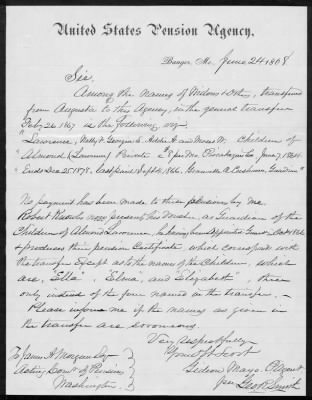 United States Pension Agency,
Bangor, Me. June 24 1868
Sir.
Among the names of Widows & Others, transferred
from Augusta to this Agency, in the general transfer
Feby 26. 1867 is the following viz.
"Lawrence, Nelly F. Georgia E. Addie A. and Moses W. Children of
Almond (Lawrence) Private $8 per Mo. June 7. 1864.
Ends Dec 25 1878. Last paid Sept 4. 1866. A. Cushman, Guardian"
No payment has been made to this pension by me.
Robert now presents his Voucher, as Guardian of the
Children of Almond Lawrence, he having been Appointed Guard. Oct 1866
& produces their pension Certificate, which corresponds with
the transfer Except as to the names of the Children, which
are, "Ella", "Elma", and "Elizabeth", three
only instead of the four names in the transfer. —
Please inform me if the names as given in
the transfer are erroneous.
Very respectfully
Your Obt Servt
Gideon Mayo. P. Agent
per Geo R Smith
To James H. Morgan Esq
Acting Comr of Pensions
Washington.